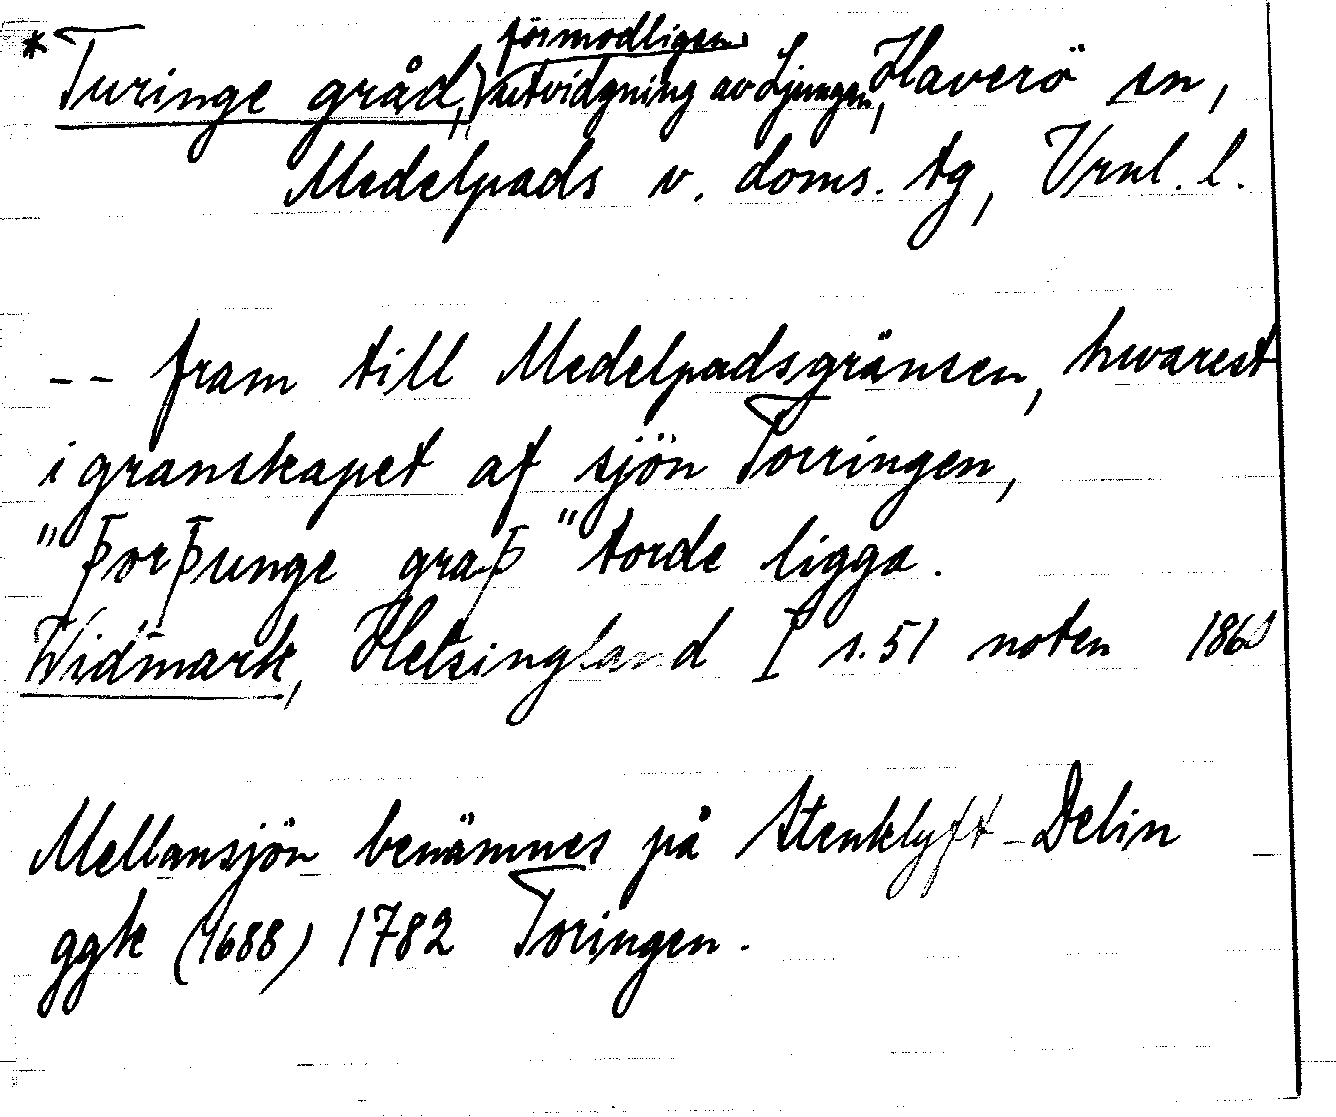 *Turinge gråd,) förmodligen utvidgning av Ljungan, Haverö sn,
Medelpads v. doms. tg, Vrnl. l.
-- fram till Medelpadsgränsen, hwarest
i granskapet af sjön Torringen,
"Þorþunge graþ" torde ligga.
Widmark, Helsingland I s. 51 noten 1860
Mellansjön benämnes på Stenklyft-Delin
ggk (1688) 1782 Toringen.